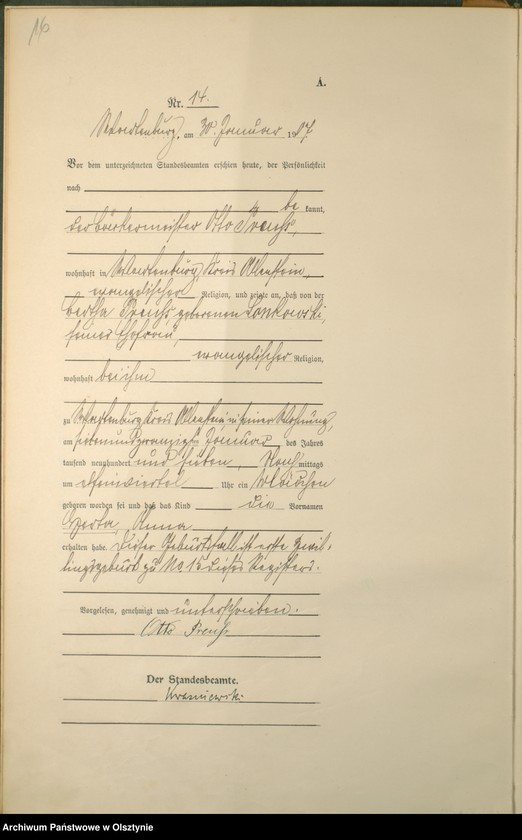 16
A.
Nr. 14.
Wartenburg, am 30. Januar 1907.
Vor dem unterzeichneten Standesbeamten erschien heute, der Persönlichkeit
nach
be kannt,
der Bäckermeister Otto Preuß,
wohnhaft in Wartenburg Kreis Allenstein,
evangelischer Religion, und zeigte an, daß von der
Bertha Preuß geborenen Lankowski,
seiner Ehefrau,
evangelischer Religion,
wohnhaft bei ihm
zu Wartenburg Kreis Allenstein in seiner Wohnung,
am siebenundzwanzigsten Januar des Jahres
tausend neunhundert und sieben Nachmittags
um einviertel Uhr ein Mädchen
geboren worden sei und daß das Kind die Vornamen
Herta Anna
erhalten habe. Dieser Geburtsfall ist erste Zwil-
lingsgeburt zu No 15 dieses Registers.
Vorgelesen, genehmigt und unterschrieben.
Otto Preuß
Der Standesbeamte.
Archiwum Państwowe w Olsztynie